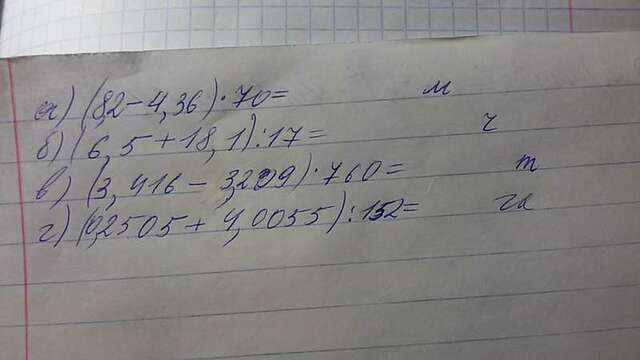 а) (8,2 – 4,36) · 70 = м
б) (6,5 + 18,1) : 17 = ч
в) (3,416 – 3,209) · 760 = т
г) (0,2505 + 4,0055) : 152 = га